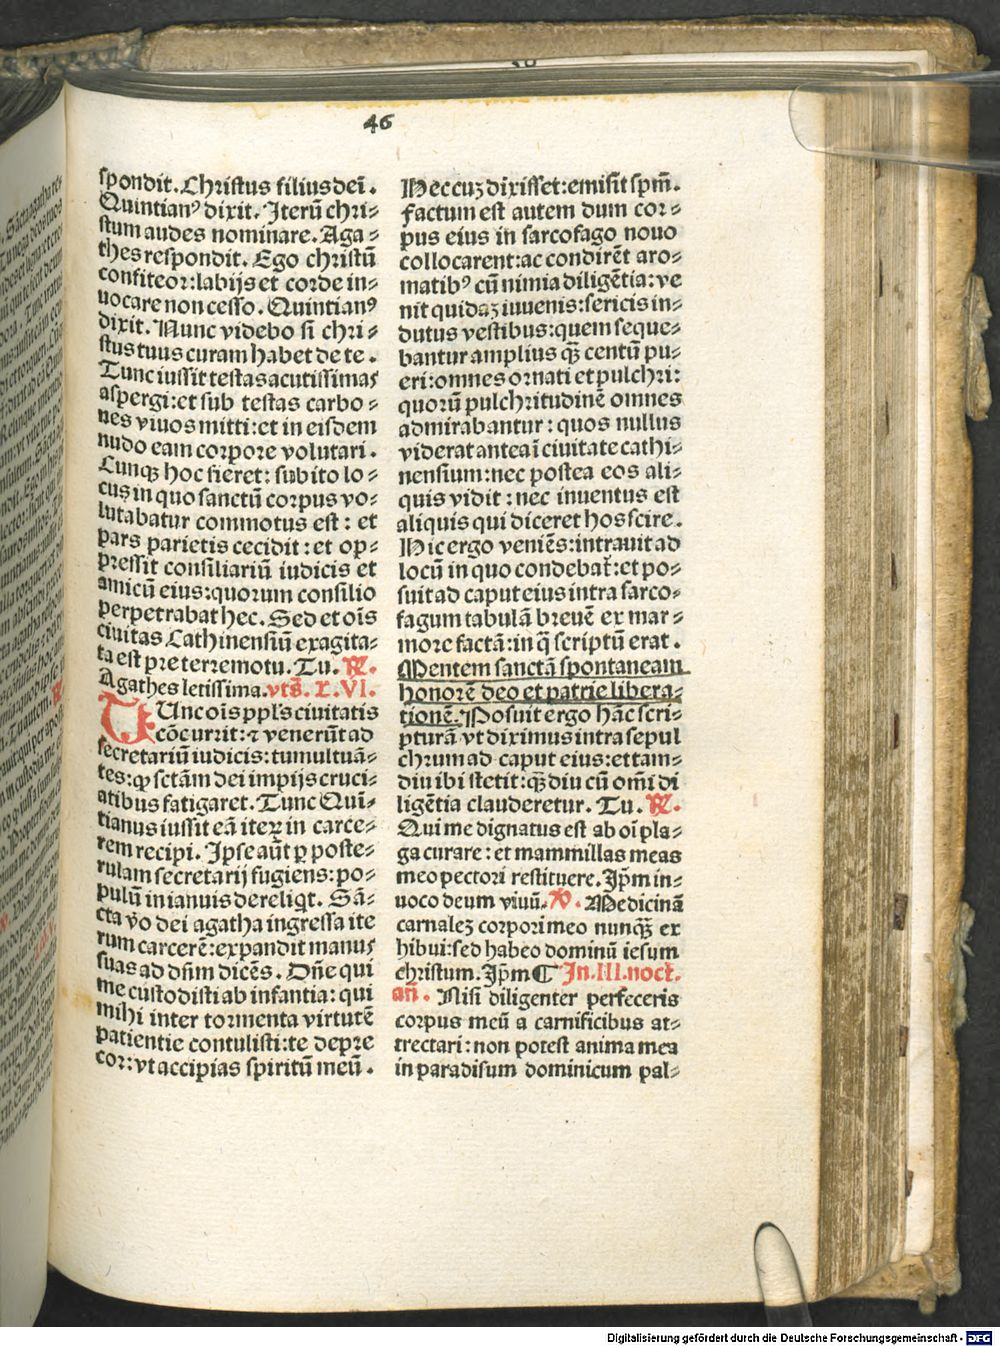 46
spondit. Christus filius deī.
Quintianꝰ dixit. Iterū chri⸗
stum audes nominare. Aga⸗
thes respondit. Ego christū
confiteor: labijs et corde in⸗
uocare non cesso. Quintianꝰ
dixit. Nunc videbo si chri⸗
stus tuus curam habet de te.
Tunc iussit testas acutissimas
aspergi: et sub testas carbo⸗
nes viuos mitti: et in eisdem
nudo eam corpore volutari.
Cunqꝫ hoc fieret: subito lo⸗
cus in quo sanctū corpus vo⸗
lutabatur commotus est: et
pars parietis cecidit: et op⸗
pressit consiliariū iudicis et
amicū eius: quorum consilio
perpetrabat hec. Sed et oīs
ciuitas Cathinensiū exagita⸗
ta est pre terremotu. Tu. ℟.
Agathes letissima. vts̄. x. VI.
TUnc oīs ppl's ciuitatis
cōcurrit: ⁊ venerūt ad
secretariū iudicis: tumultuā⸗
tes: ꝙ sctām dei impijs cruci⸗
atibus fatigaret. Tunc Qui⸗
tianus iussit eā iteꝝ in carce⸗
rem recipi. Ipse aūt ꝑ poste⸗
rulam secretarij fugiens: po⸗
pulū in ianuis dereliqt. Sā⸗
cta vo dei agatha ingressa ite
rum carcerē: expandit manus
suas ad dn̄m dicēs. Dn̄e qui
me custodisti ab infantia: qui
mihi inter tormenta virtutē
patientie contulisti: te depre
cor: vt accipias spiritū meū.
Hec cuꝫ dixisset: emisit spm̄.
factum est autem dum cor⸗
pus eius in sarcofago nouo
collocarent: ac condirēt aro⸗
matibꝰ cū nimia diligētia: ve
nit quidaꝫ iuuenis: sericis in⸗
dutus vestibus: quem seque⸗
bantur amplius qꝫ̄ centū pu⸗
eri: omnes ornati et pulchri:
quorū pulchritudinē omnes
admirabantur: quos nullus
viderat antea ī ciuitate cathi⸗
nensium: nec postea eos ali⸗
quis vidit: nec inuentus est
aliquis qui diceret hos scire.
Hic ergo veniēs: intrauit ad
locū in quo condebat̄: et po⸗
suit ad caput eius intra sarco⸗
fagum tabulā breuē ex mar⸗
more factā: in q̄ scriptū erat.
Mentem sanctā spontaneam
honorē deo et patrie libera⸗
tionē. Posuit ergo hāc scri⸗
pturā vt diximus intra sepul
chrum ad caput eius: et tam⸗
diu ibi stetit: qꝫ̄diu cū om̄i di
ligētia clauderetur. Tu. ℟.
Qui me dignatus est ab oī pla⸗
ga curare: et mammillas meas
meo pectori restituere. Ip̄m in⸗
uoco deum viuū. ℣. Medicinā
carnaleꝫ corpori meo nunqꝫ̄ ex
hibui: sed habeo dominū iesum
christum. Ip̄m ¶ In. III. noct̄.
an̄. Nisi diligenter perfeceris
corpus meū a carnificibus at⸗
trectari: non potest anima mea
in paradisum dominicum pal⸗
Digitalisierung gefördert durch die Deutsche Forschungsgemeinschaft - DFG